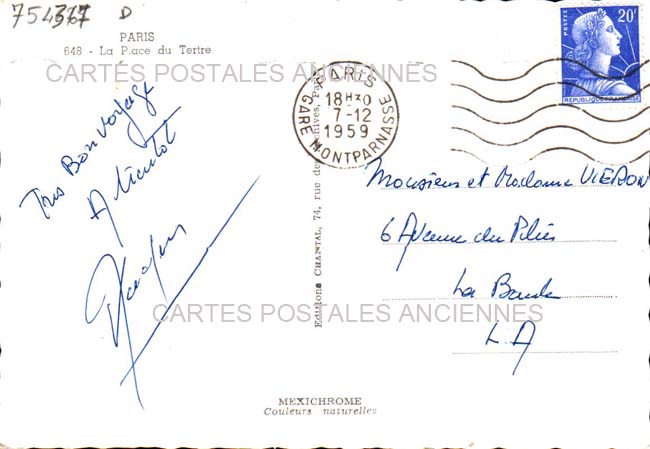 754367 D
PARIS
648 - La Place du Tertre
CARTES POSTALES ANCIENNES
Tres Bon voyage
A bientôt
Editions CHANTAL, 74, rue des Archives, Paris
PARIS
GARE MONTPARNASSE
18H30
7-12
1959
POSTES
20F
REPUBLIQUE FRANÇAISE
Monsieur et Madame VIERON
6 Avenue du
La Baule
L. A
CARTES POSTALES ANCIENNES
MEXICHROME
Couleurs naturelles